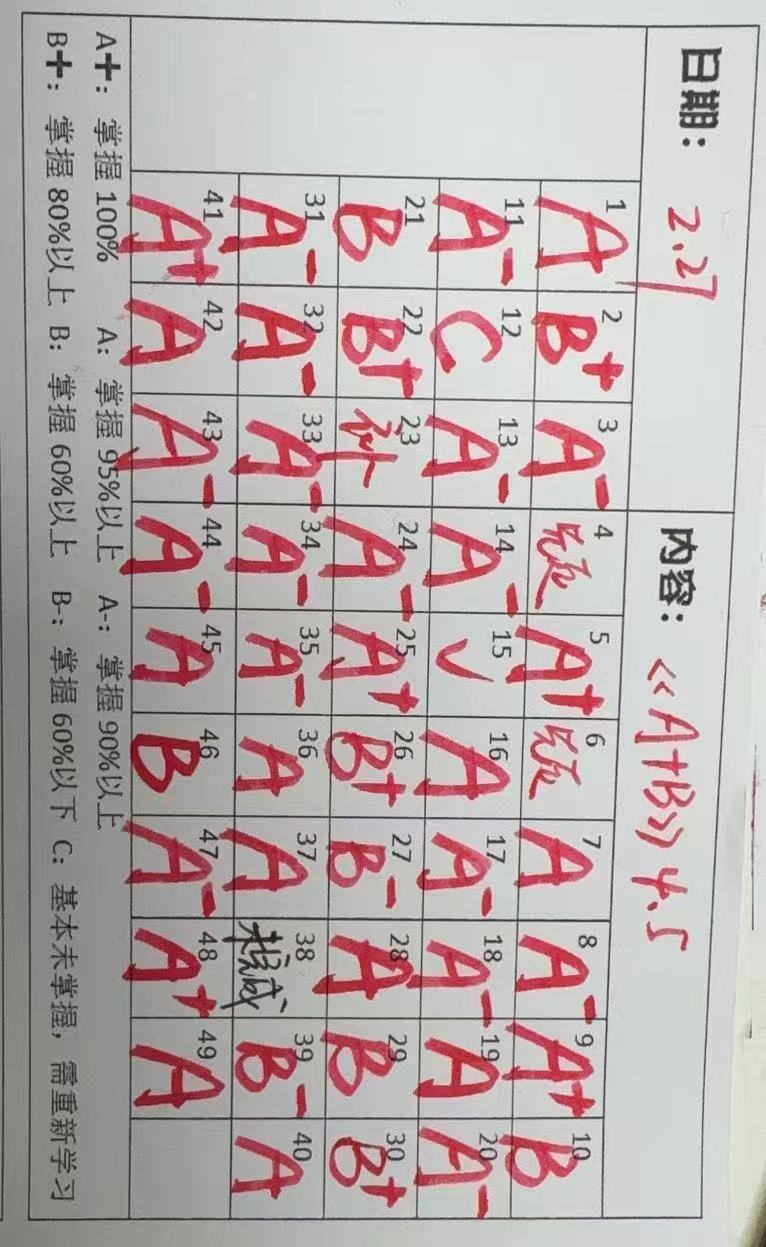 日期： 2.27 内容： 《A+B》 4.5
1 A 2 B+ 3 A- 4 5 A+ 6 7 A 8 A- 9 A+ 10 B
11 A- 12 C 13 A- 14 A- 15 ✓ 16 A 17 A- 18 A- 19 A 20 A-
21 B 22 B+ 23 补 24 A- 25 A+ 26 B+ 27 B- 28 A 29 B 30 B+
31 A- 32 A- 33 A- 34 A- 35 A- 36 A 37 A 38 未完成 39 B- 40 A
41 A+ 42 A 43 A- 44 A- 45 A 46 B 47 A- 48 A+ 49 A
A+： 掌握 100% A： 掌握 95%以上 A-： 掌握 90%以上
B+： 掌握 80%以上 B： 掌握 60%以上 B-： 掌握 60%以下 C： 基本未掌握，需重新学习